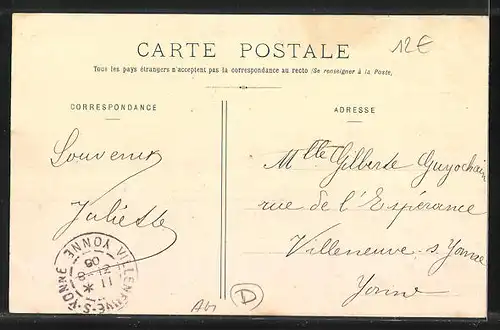 CARTE POSTALE
12€
Tous les pays étrangers n'acceptent pas la correspondance au recto (Se renseigner à la Poste.)
CORRESPONDANCE
Souvenir
Juliette
ADRESSE
Mlle Gilberte Guyochain
rue de l'Espérance
Villeneuve s. Yonne
Yonne
VILLENEUVE-S-YONNE
YONNE
11
05
D